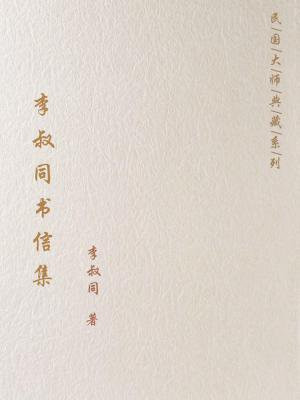 民|国|大|师|典|藏|系|列
李叔同书信集
李叔同 著